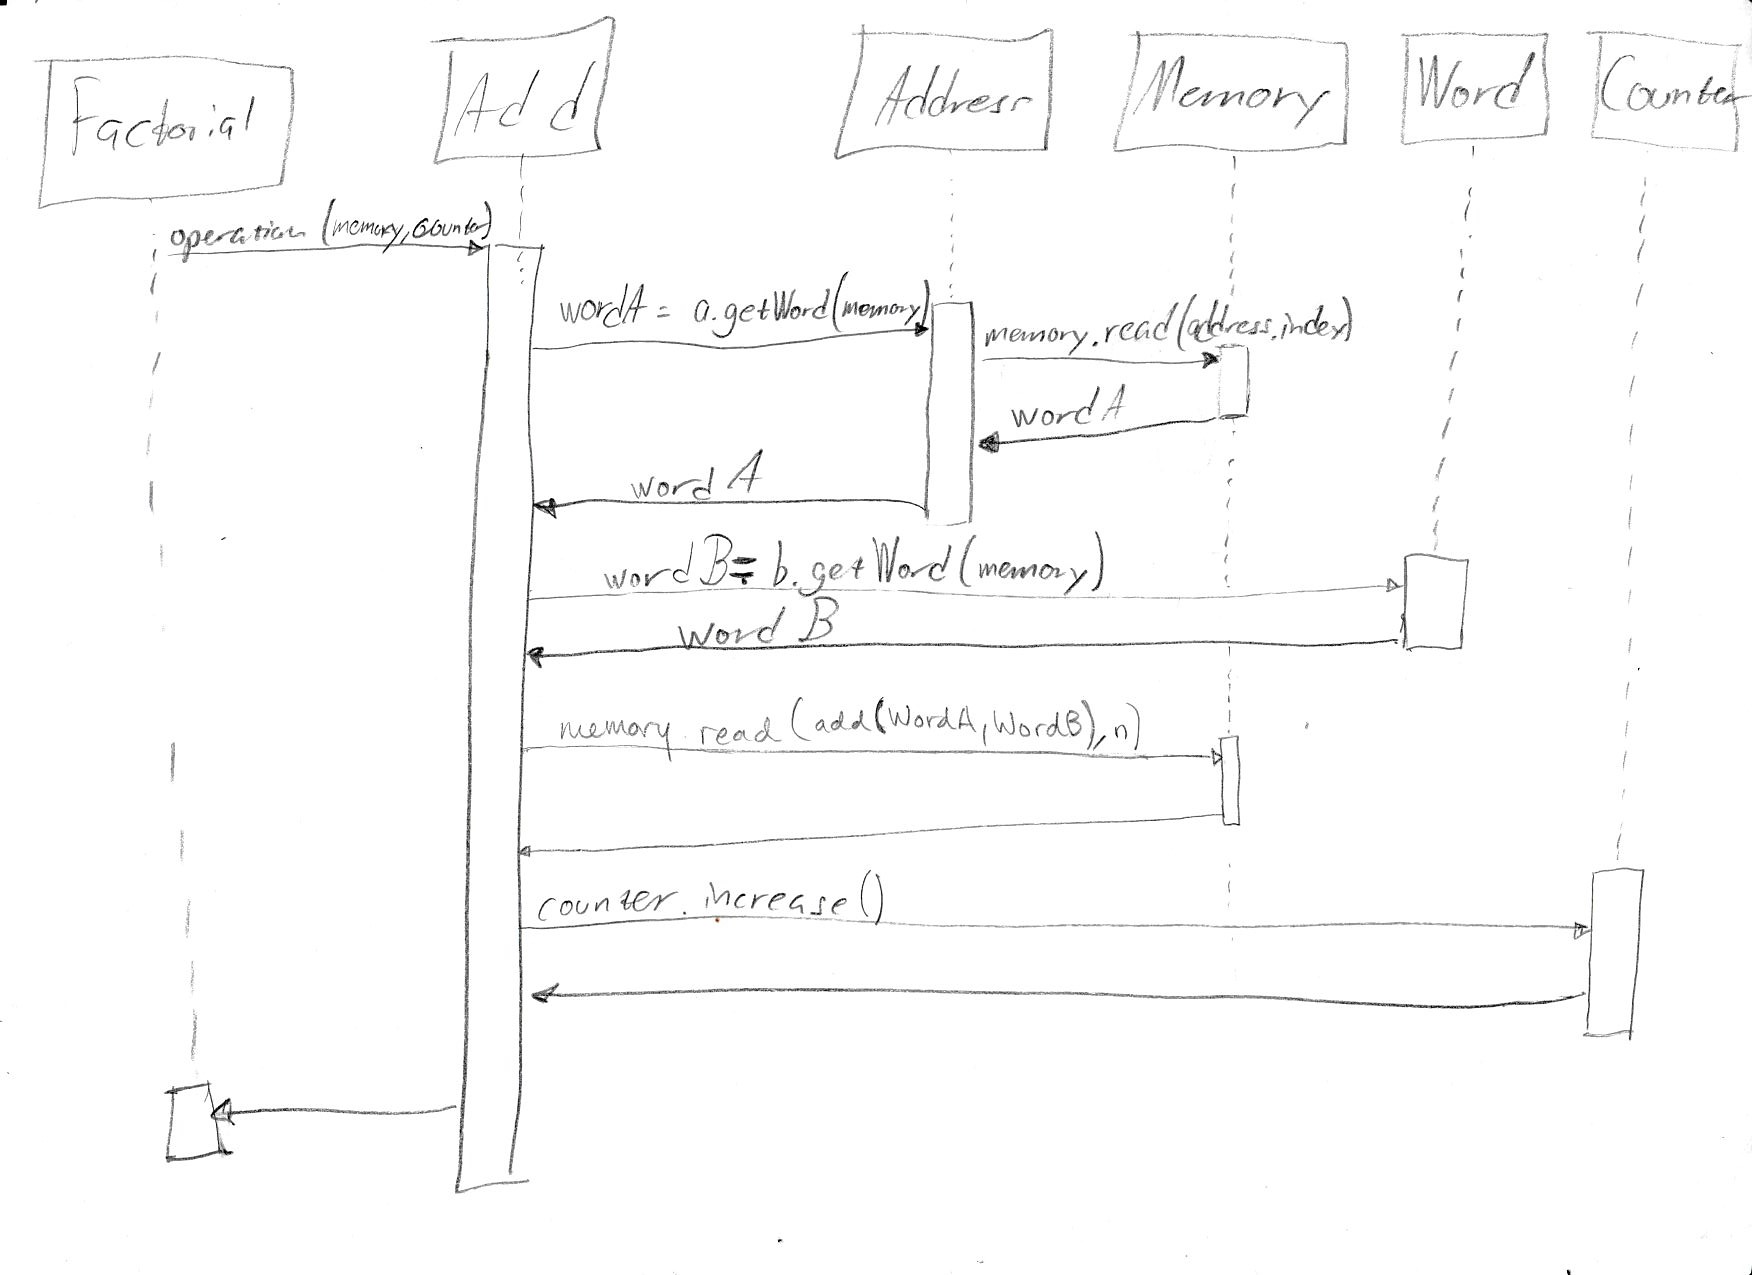 Factorial
Add
Address
Memory
Word
Counter
operation (memory, counter)
wordA = a.getWord(memory)
memory.read(address.index)
wordA
word A
word B = b.getWord(memory)
word B
memory.read(add(WordA, WordB), n)
counter.increase()